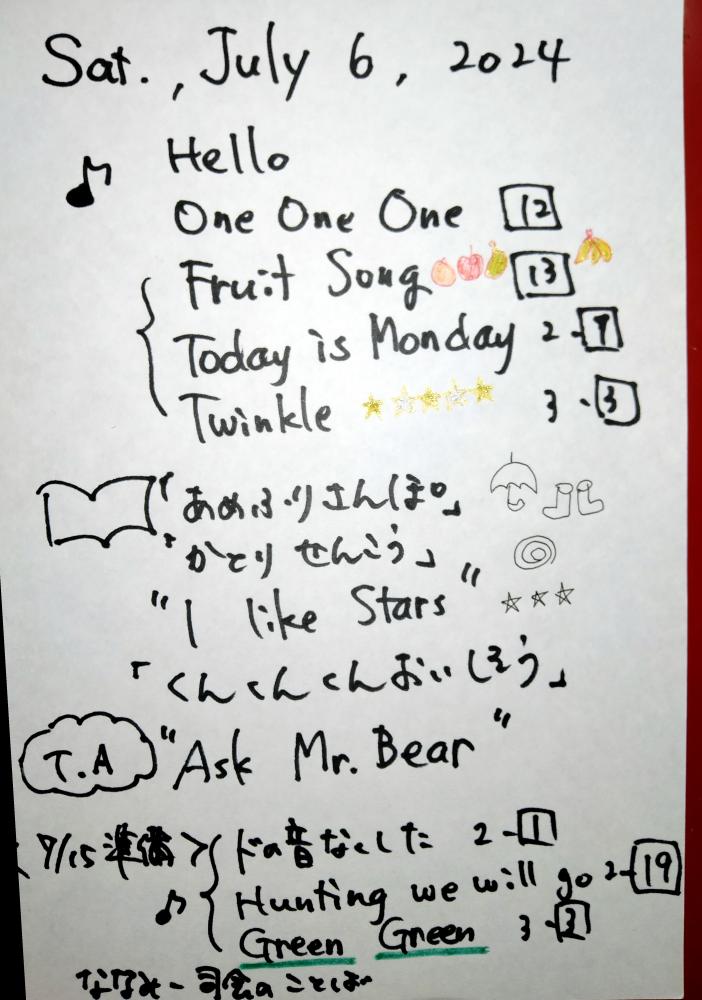 Sat., July 6, 2024
Hello
One One One 12
Fruit Song 13
Today is Monday 2-9
Twinkle 3-3
「あめふりさんぽ」
「かとりせんこう」
"I like Stars"
「くんくんくんおいしそう」
T.A "Ask Mr. Bear"
<7/15準備> ドの音なくした 2-1
Hunting we will go 2-19
Green Green 3-2
ななみー司会のことば